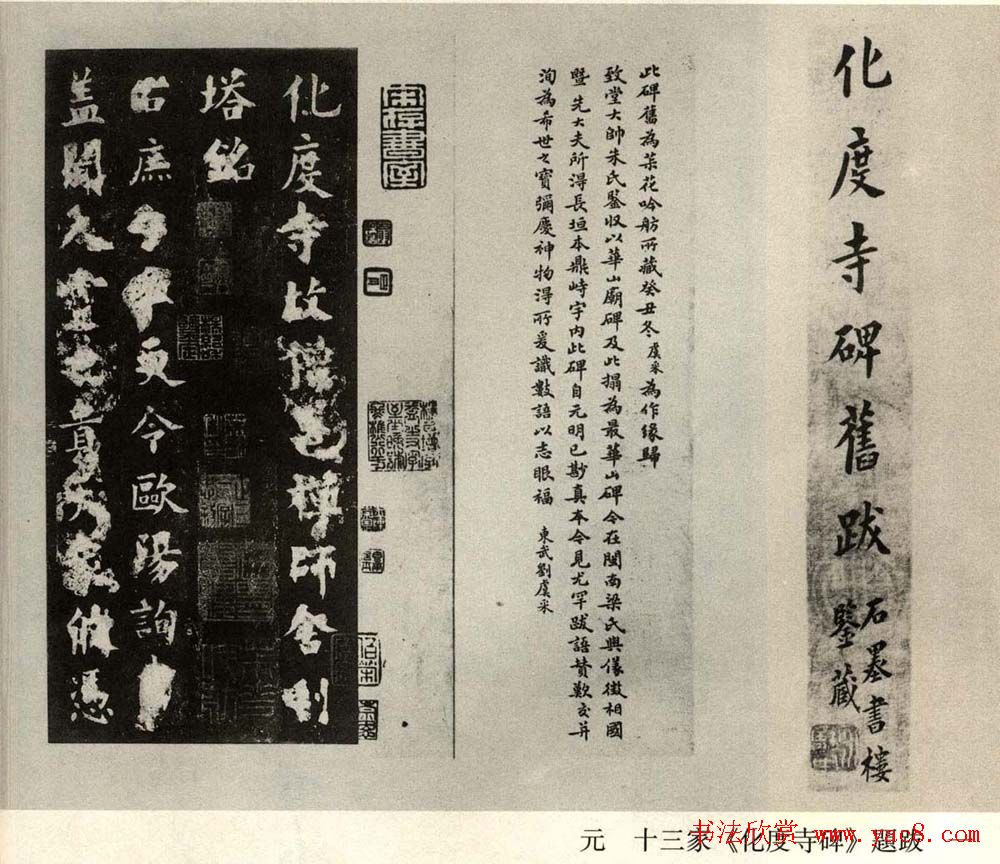 化度寺碑舊跋
石墨書樓
鑒藏
此碑舊為菜花吟舫所藏癸丑冬虞采為作緣歸
致堂大帥朱氏鑒收以華山廟碑及此搨為最華山碑今在閩南梁氏與儀徵相國
暨先大夫所得長垣本鼎峙宇內此碑自元明已尠真本今見尤罕跋語贊歎交并
洵為希世之寶彌慶神物得所爰識數語以志眼福 東武劉虞采
化度寺故僧邕禪師舍利
塔銘
右庶子李百藥今歐陽詢
蓋聞人靈之貴天象攸憑
元 十三家《化度寺碑》題跋
书法欣赏 www.yac8.com